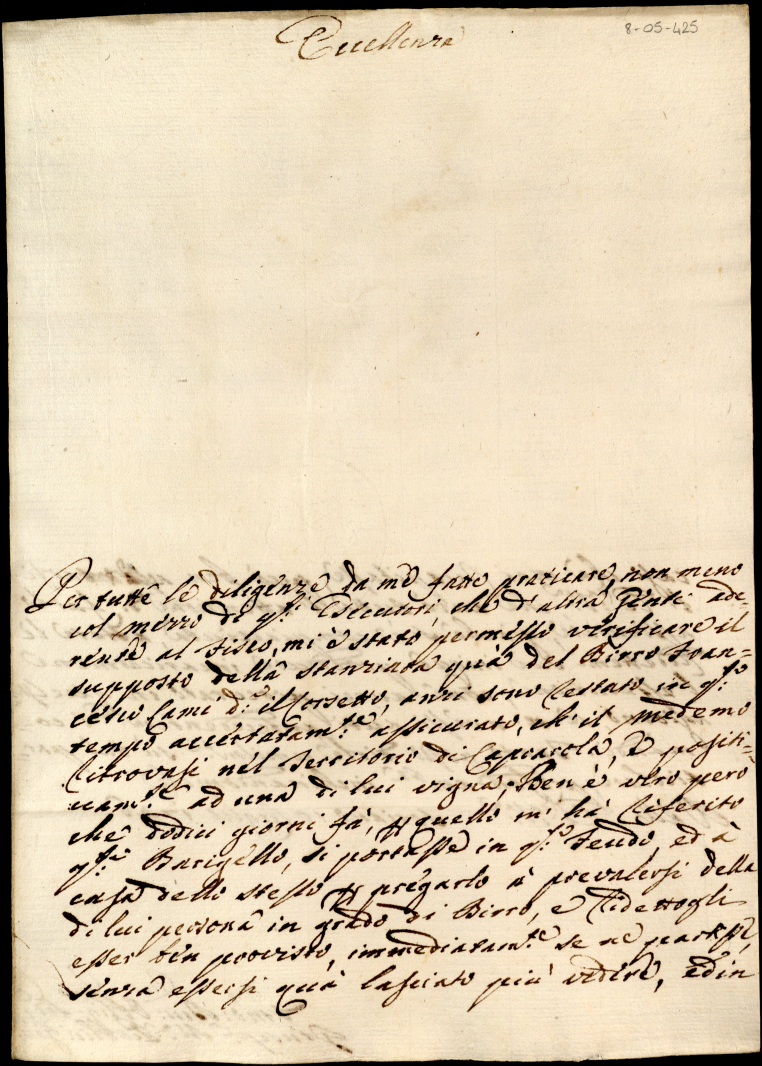 8-05-425
Eccellenza
Per tutte le diligenze da me fatte praticare, non meno
col mezzo di q.ti Esecutori, che d'altra gente ade-
rente al Fisco, mi è stato permesso verificare il
supposto della stanziata quà del Birro Fran=
cesco Cami d.o il Corsetto, anzi sono restato in q.to
tempo accertatam.te assicurato, ch'il medemo
ritrovasi nel Territorio di Caprarola, e positi-
vam.te ad una di lui vigna; Ben è vero però
che dodici giorni fà, p quello m'hà riferito
q.to Barigello, si portasse in q.to Feudo, ed à
casa dello stesso p pregarlo à prevalersi della
di lui persona in grado di Birro, e ridettogli
esser ben provisto, immediatam.te se ne partisse,
senza essersi quà lasciato più vedere, ed in